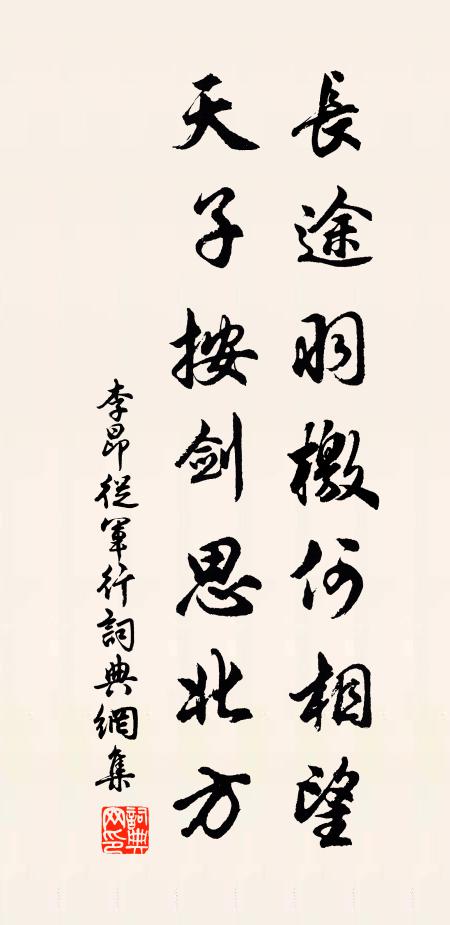 長途羽檄何相望
天子按劍思北方
李昂從軍行詞典網集
詞典网印